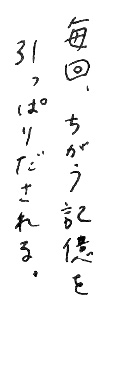 毎回、ちがう記億を
引っぱりだされる.